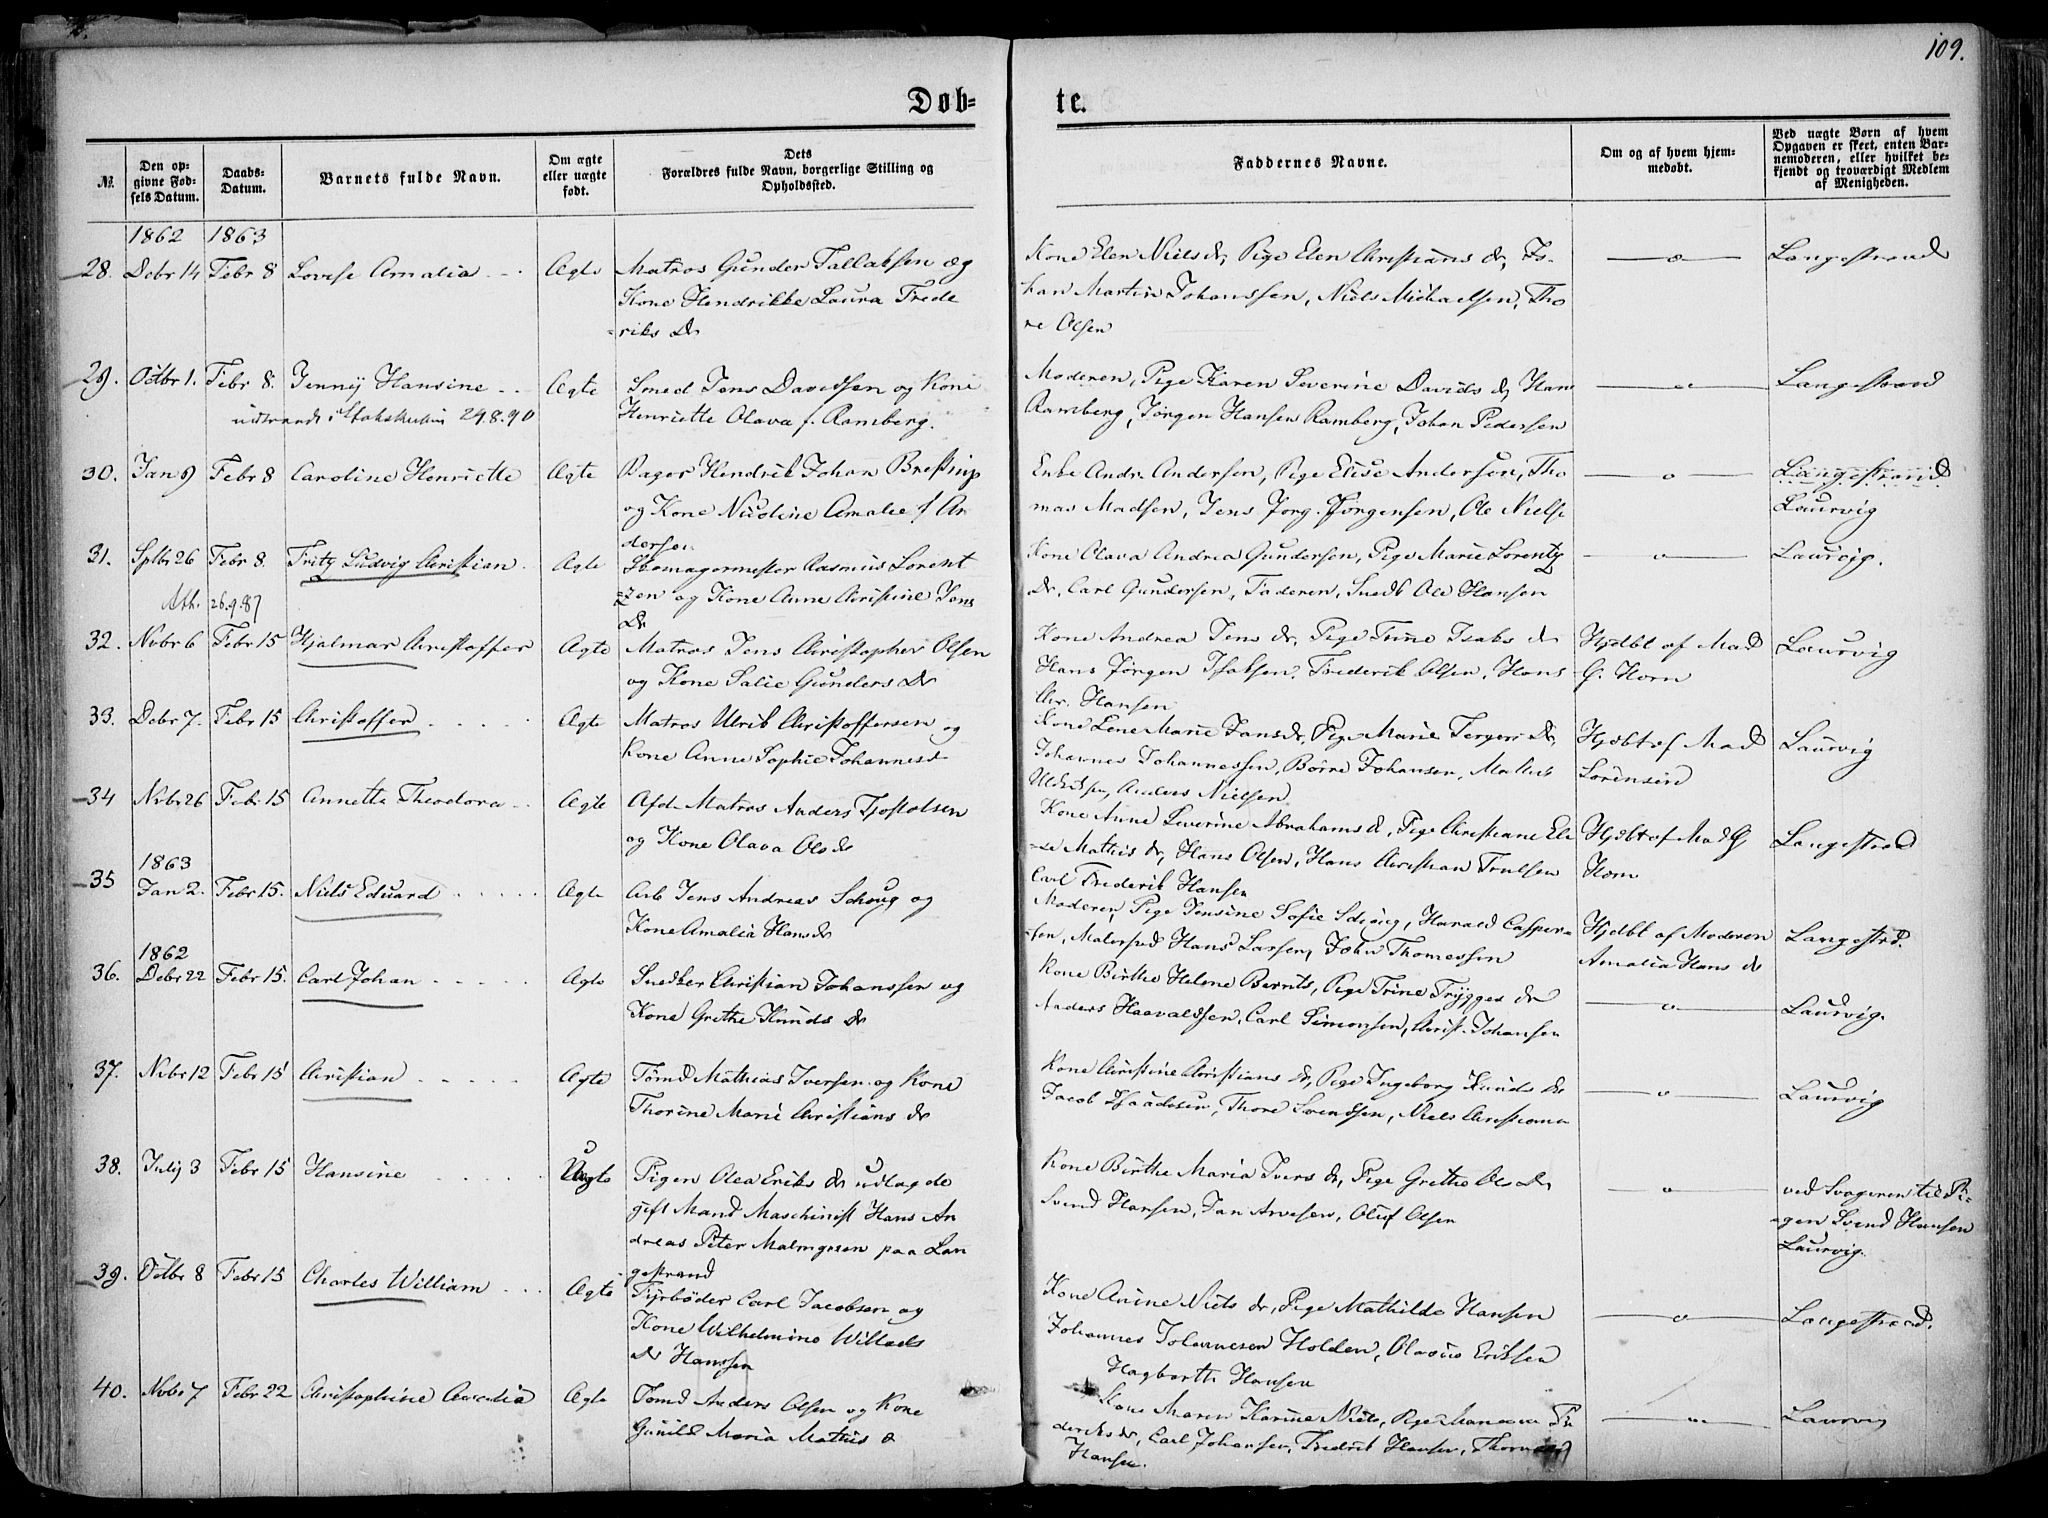 109.
Döb= te.
№. Den op= givne Fød= sels Datum. Daabs= Datum. Barnets fulde Navn. Om ægte eller uægte født. Dets Forældres fulde Navn, borgerlige Stilling og Opholdssted. Faddernes Navne. Om og af hvem hjem= medøbt. Ved uægte Børn af hvem Opgaven er skeet, enten Bar= nemoderen, eller hvilket be= kjendt og troværdigt Medlem af Menigheden.
1862 1863
28. Debr 14 Febr 8 Lovise Amalia Ægte Matros Gunder Tallaksen og
Kone Hendrikke Laura Frede
=riks Dr
Kone Elen Nielsdr, Pige Elen Christians dr, Is-
kan Martin Johanssen, Niels Michaelsen, Tho
re Olsen
—o— Langestrand
29. Octbr 1. Febr 8. Jenny Hansine Ægte Smed Jens Davidsen og Kone
udtraadt i Statskirken 29.8.90
Henriette Olava f. Ramberg.
Moderen, Pige Karen Severine Davids dr, Hans
Ramberg, Jørgen Hansen Ramberg, Johan Pedersen
—o— Langestrand
30. Jan 9 Febr 8 Caroline Henriette Ægte Bager Hendrik Johan Brestrup
og Kone Nicoline Amalie f An
dersen
Enke Andr. Andersen, Pige Elise Andersen, Tho
mas Madsen, Jens Jørg. Jørgensen, Ole Nielse
—o— Langestrand
Laurvig
31. Sptbr 26 Febr 8. Fritz Ludvig Christian Ægte Skomagermester Rasmus Lorent
Att. 26.9.87
zen og Kone Anne Christine Jens
Dr
Kone Olava Andrea Gundersen, Pige Marie Lorentz
Dr, Carl Gundersen, Faderen, Snedk Ole Hansen
—o— Laurvig.
32. Novbr 6 Febr 15 Hjalmar Christoffer Ægte Matros Jens Christopher Olsen
og Kone Salie Gunders Dr
Kone Andrea Jens dr, Pige Trine Isaks dr
Hans Jørgen Isaksen, Frederik Olsen, Hans
Chr. Hansen
Hjdbt af Mad
G. Horn
Laurvig
33. Debr 7. Febr 15 Christoffer Ægte Matros Ulrik Christoffersen og
Kone Anne Sophie Johannesd
Kone Lene Marie Jansdr, Pige Marie Terger Dr,
Johannes Johannessen, Börre Johansen,
Uldriksen, Anders Nielsen
Hjdbt af Mad
Sörensen
Laurvig
34 Nvbr 26 Febr 15 Annette Theodora Ægte Afd. Matros Anders Tjostolsen
og Kone Olava Ols dr
Kone Anne Severine Abrahams d, Pige Christiane Ele
=se Mathis dr, Hans Olsen, Hans Christian Trulsen
Carl Frederik Hansen
Hjdbt af Mad G
Horn
Langestrad
1863
35 Jan 2. Febr 15. Niels Eduard Ægte Arb Jens Andreas Schoug og
Kone Amalia Hans dr
Moderen, Pige Jensine Sofie Schoug, Harald Casper=
=sen, Malersvd Hans Larsen, John Thomessen
Hjdbt af Moderen
Amalia Hans dr
Langestrd.
1862
36. Debr 22 Febr 15. Carl Johan Ægte Snedker Christian Johanssen og
Kone Grethe Knuds Dr
Kone Birthe Helene Bernts, Pige Trine Trygges dr
Anders Haavaldsen, Carl Simonsen, Christ. Johansen
—o— Laurvig.
37. Nvbr 12 Febr 15 Christian Ægte Tömd Mathias Iversen og Kone
Thorine Marie Christians dr
Kone Christine Christians dr, Pige Ingeborg Knuds dr
Jacob, Thore Svendsen, Niels Christianse
—o— Laurvig
38. July 3 Febr 15 Hansine Uægte Pigen Olea Eriks dr udlagde
gift Mand Maschinist Hans An
dreas Peter Malmgreen paa Lan
gestrand
Kone Birthe Maria Ivers dr, Pige Grethe Ols Dr
Svend Hansen, Jan Arvesen, Oluf Olsen
—o— ved Svogeren til Pi=
=gen Svend Hansen
Laurvig.
39. Octbr 8 Febr 15 Charles William Ægte Fyrböder Carl Jacobsen og
Kone Wilhelmine Willads
Dr Hanssen
Kone Anine Niels dr, Pige Mathilde Hansen
Johannes Johannesen Holden, Olavus Eriksen
Hagbarth Hansen
—o— Langestrand.
40. Nvbr 7 Febr 22 Christophine Amalia Ægte Tömd Anders Olsen og Kone
Gunild Maria Mathis d
Kone Maren Karine Niels, Pige
deriks dr, Carl Johansen, Fredrik Hansen,
Hansen.
Laurvig